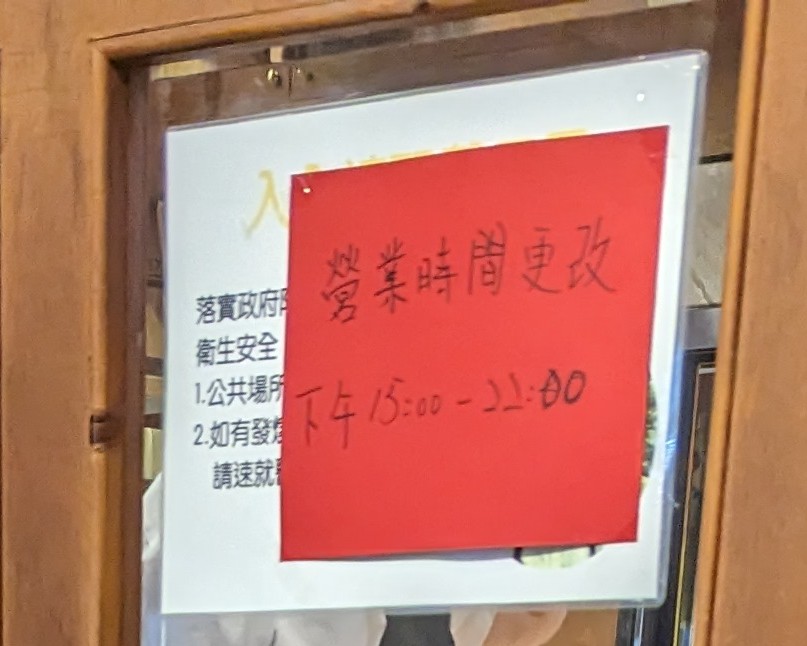 入
營業時間更改
下午 15:00 - 22:00
落實政府
衛生安全
1.公共場所
2.如有發燒
請速就